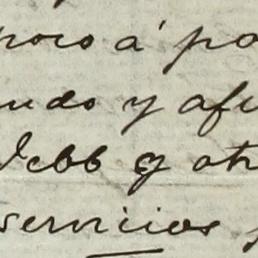 poco á po
ndo y afu
Webb y otr
servicios